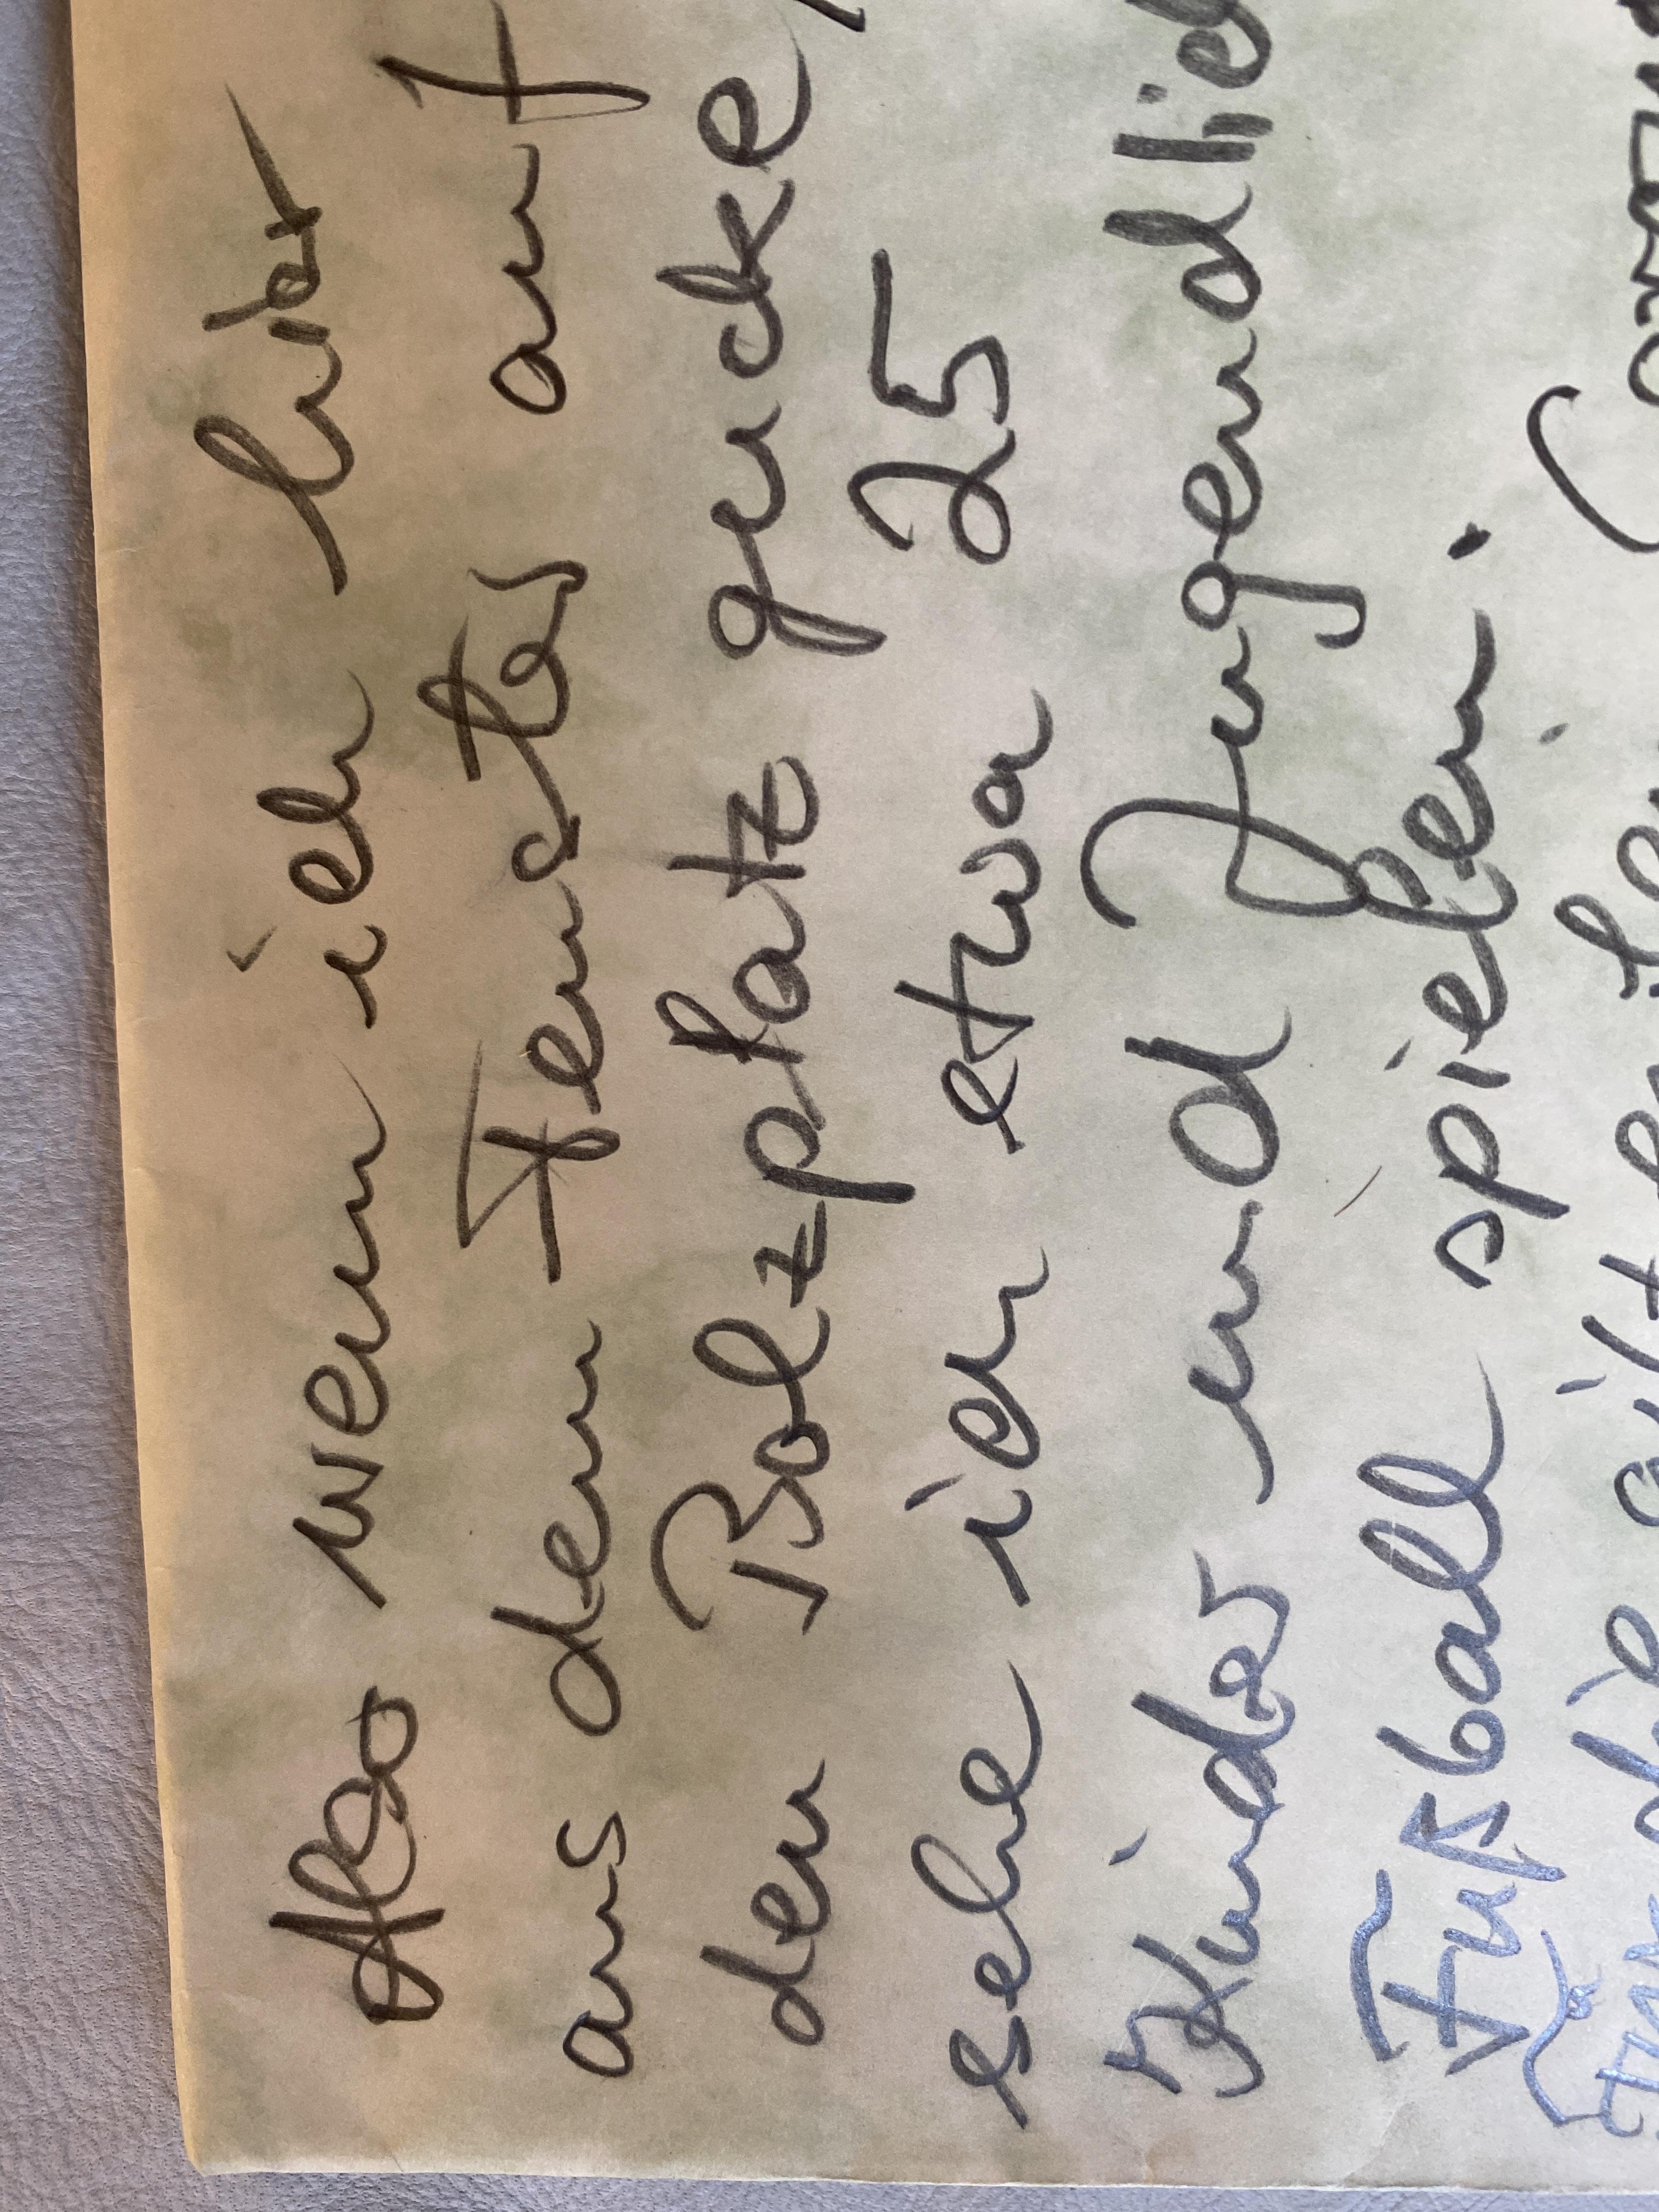 Also wenn ich hier
aus dem Fenster auf
den Bolzplatz gucke,
sehe ich etwa 25
Kinder und Jugendliche
Fußball spielen.